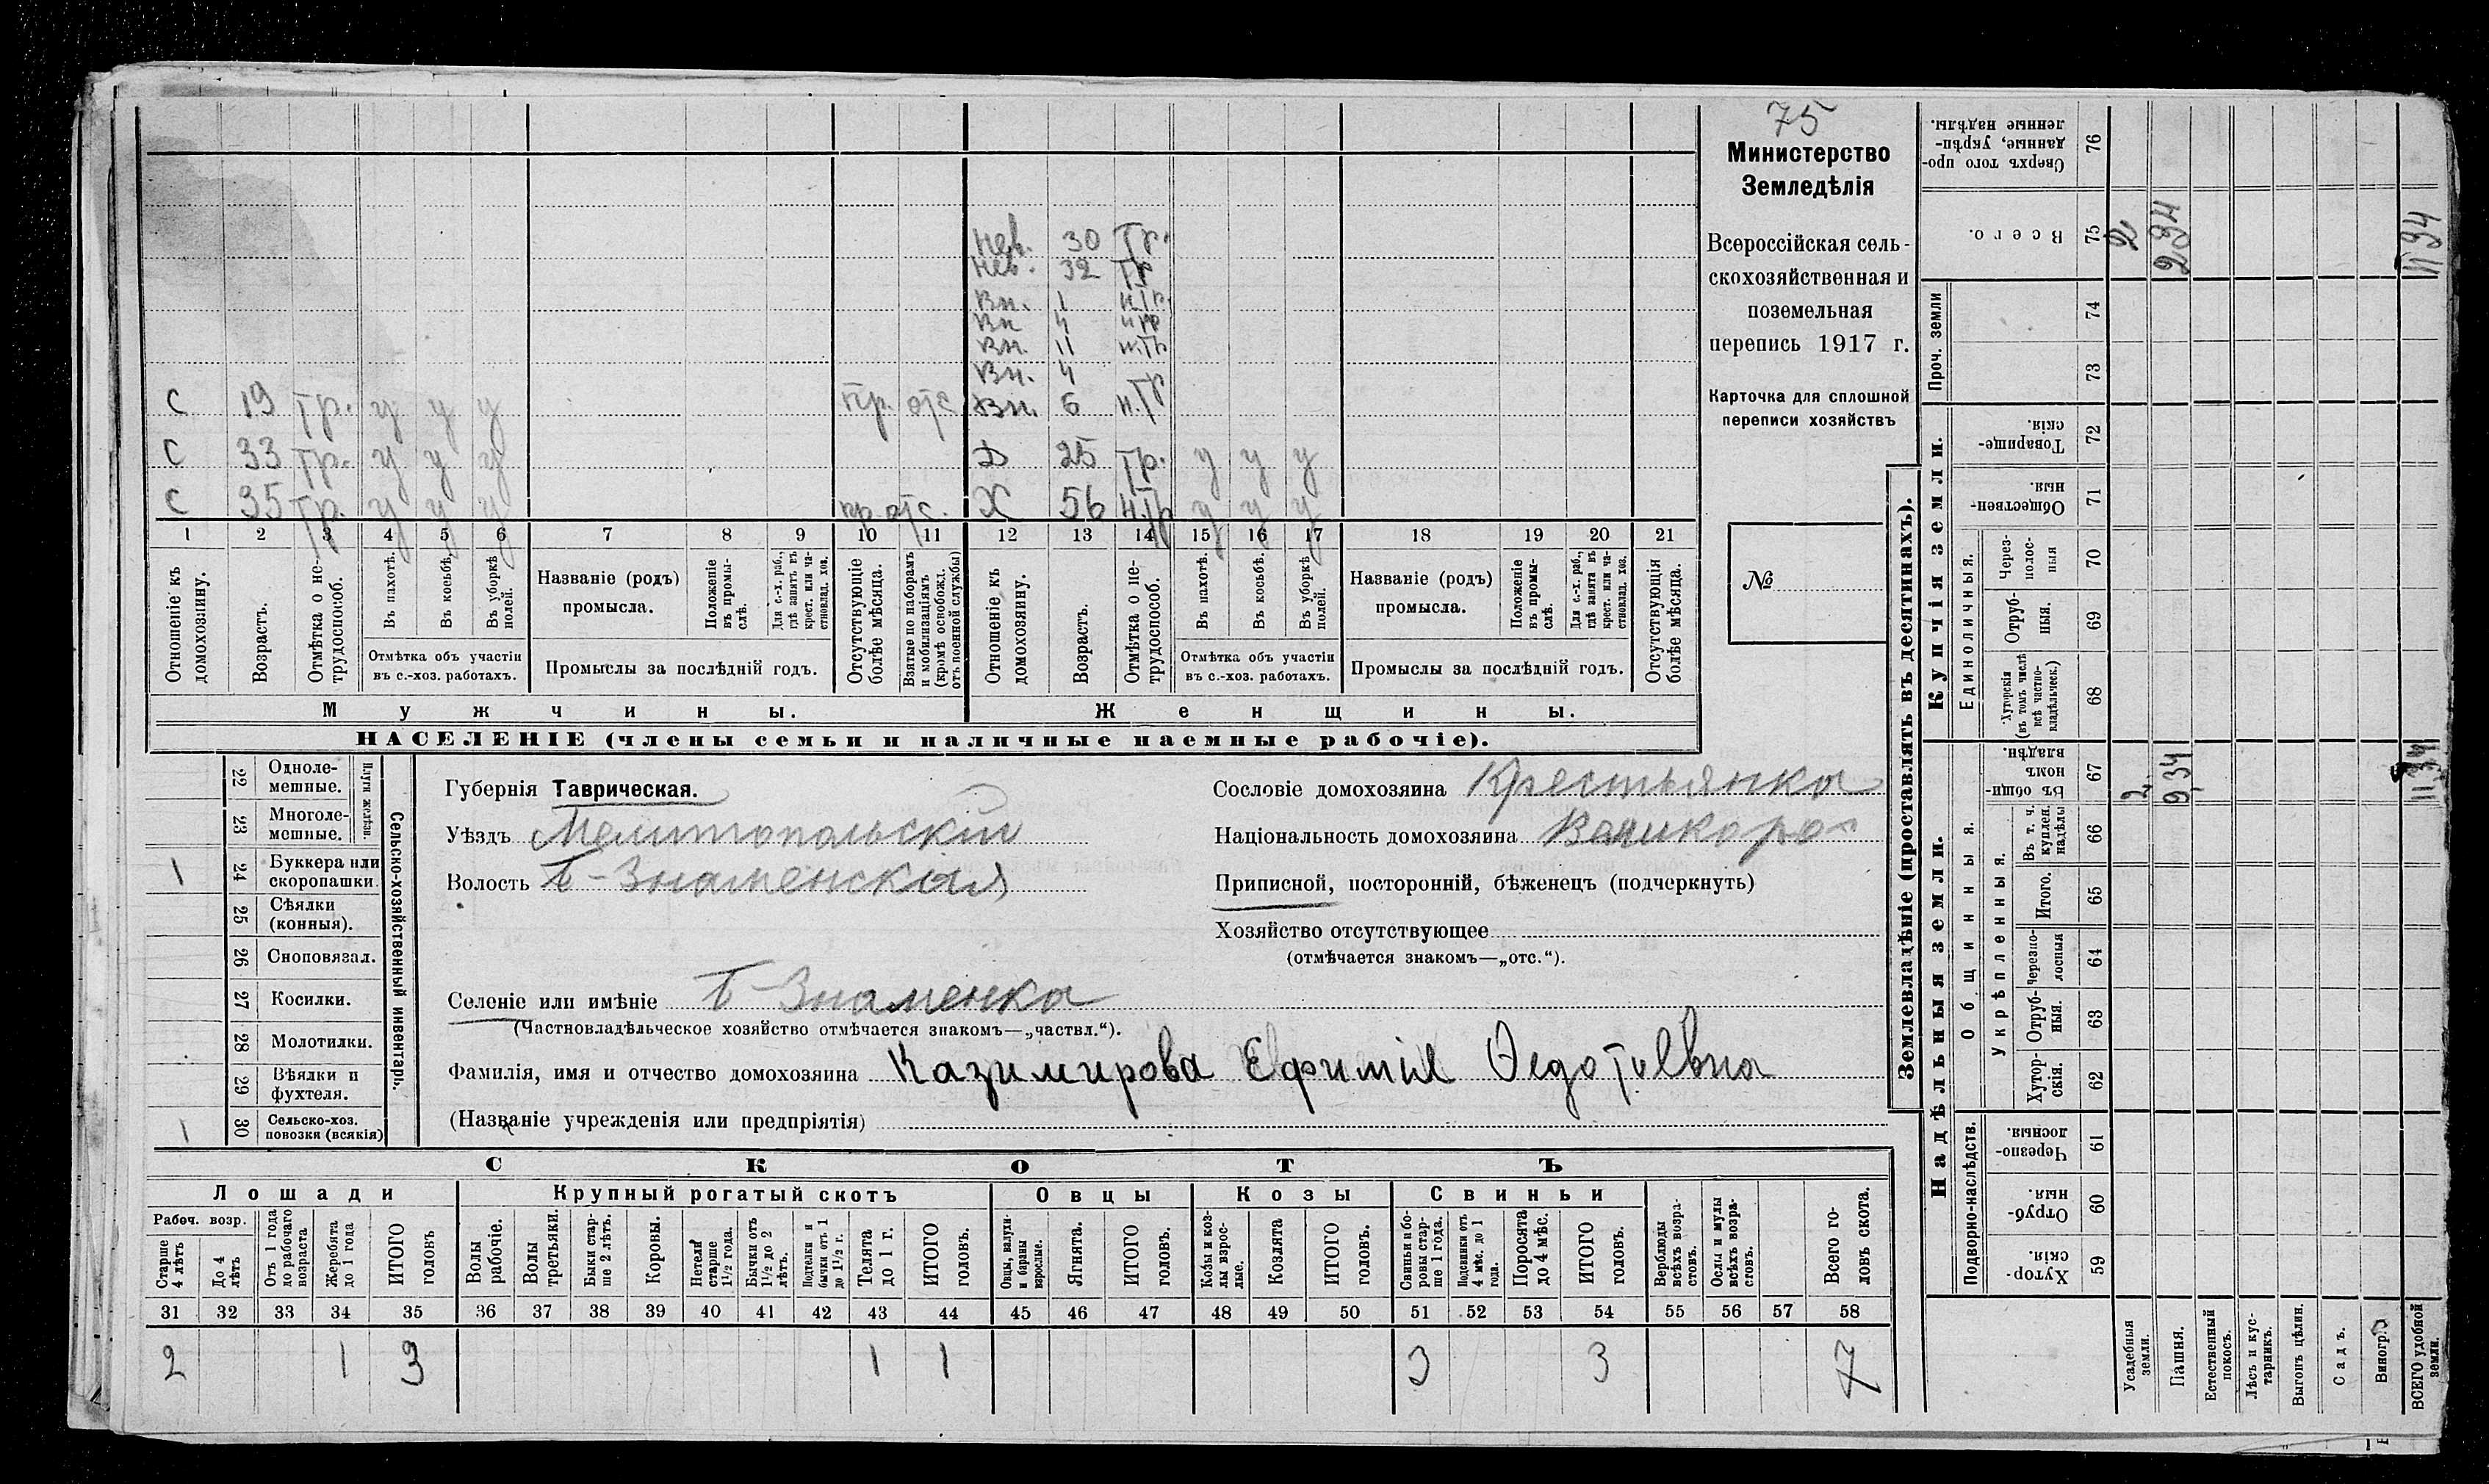 75
Министерство
Земледѣлія
Всероссійская сель-
скохозяйственная и
поземельная
перепись 1917 г.
Карточка для сплошной
переписи хозяйствъ
№
Нев. 30 Тр.
Нев. 32 Тр
Вн. 1 н.Тр.
Вн 4 н тр
Вн. 11 н.Тр
Вн. 4
С 19 Тр. у у у пр. отс Вн. 6 н.Тр
С 33 Тр. у у у Д 25 Тр. у у у
С 35 Тр. у у у пр. отс. Х 56 н.Тр у у у
1 2 3 4 5 6 7 8 9 10 11 12 13 14 15 16 17 18 19 20 21
Отношеніе къ домохозяину.
Возрастъ.
Отмѣтка о не-трудоспособ.
Въ пахотѣ.
Въ косьбѣ.
Въ уборкѣ полей.
Отмѣтка объ участіи
въ с.-хоз. работахъ.
Названіе (родъ)
промысла.
Положеніе въ промы-слѣ.
Для с.-х. раб., гдѣ занятъ въ крест. или ча-стновлад. хоз.
Промыслы за послѣдній годъ.
Отсутствующіе болѣе мѣсяца.
Взятые по наборамъ и мобилизаціямъ (кромѣ освобожд. отъ военной службы)
Отношеніе къ домохозяину.
Возрастъ.
Отмѣтка о не-трудоспособ.
Въ пахотѣ.
Въ косьбѣ.
Въ уборкѣ полей.
Отмѣтка объ участіи
въ с.-хоз. работахъ.
Названіе (родъ)
промысла.
Положеніе въ промы-слѣ.
Для с.-х. раб., гдѣ занята въ крест. или ча-стновлад. хоз.
Промыслы за послѣдній годъ.
Отсутствующія болѣе мѣсяца.
Мужчины. Женщины.
НАСЕЛЕНІЕ (члены семьи и наличные наемные рабочіе).
Сельско-хозяйственный инвентарь.
Плуги желѣзн.
22 Одноле-мешные.
23 Многоле-мешные.
1 24 Буккера или скоропашки.
25 Сѣялки (конныя).
26 Сноповязал.
27 Косилки.
28 Молотилки.
29 Вѣялки и фухтеля.
1 30 Сельско-хоз. повозки (всякія)
Губернія Таврическая.
Уѣздъ Мелитопольскій
Волость Б-Знаменская
Селеніе или имѣніе Б-Знаменка
(Частновладѣльческое хозяйство отмѣчается знакомъ—„частвл.“).
Фамилія, имя и отчество домохозяина Казимирова Ефимія Ѳедотьевна
(Названіе учрежденія или предпріятія)
Сословіе домохозяина Крестьянка
Національность домохозяина Великорос
Приписной, посторонній, бѣженецъ (подчеркнуть)
Хозяйство отсутствующее
(отмѣчается знакомъ—„отс.“).
СКОТЪ
Лошади Крупный рогатый скотъ Овцы Козы Свиньи
Рабоч. возр.
Старше 4 лѣтъ
До 4 лѣтъ
Отъ 1 года до рабочаго возраста
Жеребята до 1 года
ИТОГО головъ
Волы рабочіе.
Волы третьяки.
Быки стар-ше 2 лѣтъ.
Коровы.
Нетели старше 1½ года.
Бычки отъ 1½ до 2 лѣтъ.
Подтелки и бычки отъ 1 до 1½ г.
Телята до 1 г.
ИТОГО головъ.
Овцы, валухи и бараны взрослые.
Ягнята.
ИТОГО головъ.
Козы и коз-лы взрос-лые.
Козлята
ИТОГО головъ.
Свиньи и бо-ровы стар-ше 1 года.
Подсвинки отъ 4 мѣс. до 1 года.
Поросята до 4 мѣс.
ИТОГО головъ.
Верблюды всѣхъ возра-стовъ.
Ослы и мулы всѣхъ возра-стовъ.
Всего го-ловъ скота.
31 32 33 34 35 36 37 38 39 40 41 42 43 44 45 46 47 48 49 50 51 52 53 54 55 56 57 58
2 1 3 1 1 3 3 7
Землевладѣніе (проставлять въ десятинахъ).
Надѣльныя земли. Купчія земли. Проч. земли
Подворно-наслѣдств.
Общинныя.
Укрѣпленныя.
Единоличныя.
59 Хутор-скія.
60 Отруб-ныя.
61 Черезпо-лосныя.
62 Хутор-скія.
63 Отруб-ныя.
64 Черезпо-лосныя
65 Итого.
66 Въ т. ч. куплен. надѣлы
67 Въ общин-номъ владѣн. 2 9,34 11,34
68 Хуторскія (въ томъ числѣ всѣ частно-владѣльческ.)
69 Отруб-ныя.
70 Через-полос-ныя
71 Обществен-ныя.
72 Товарище-скія.
73
74
75 Всего. 2
76 Сверхъ того про-данные, укрѣп-ленные надѣлы.
Усадебныя земли.
Пашня.
Естественный покосъ.
Лѣсъ и кус-тарникъ.
Выгонъ цѣлин.
Садъ.
Виногр.
ВСЕГО удобной земли.